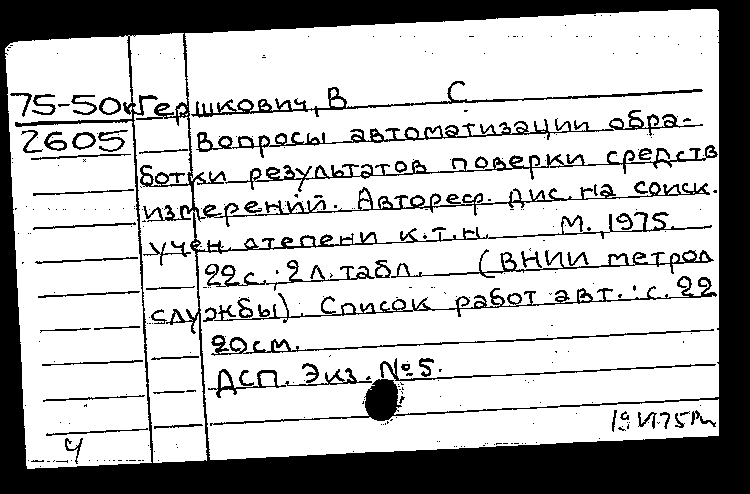 75-50к Гершкович, В С
2605 Вопросы автоматизации обра-
ботки результатов поверки средств
измерений. Автореф. дис. на соиск.
учен. степени к.т.н. М., 1975.
22 с.; 2 л. табл. (ВНИИ метрол
службы). Список работ авт.: с. 22
20см.
ДСП. Экз. №5.
19 VI 75
ч